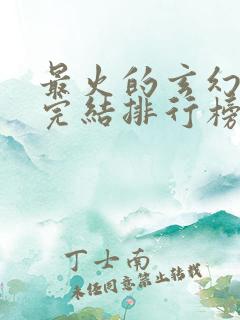 最火的玄幻
完结排行榜
丁士南
未经同意禁止转载